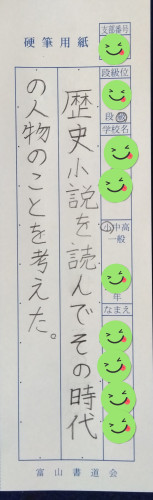 硬筆用紙
支部番号
段級位
段 級
学校名
小中高
一般
年
なまえ
歴史小説を読んでその時代
の人物のことを考えた。
富山書道会